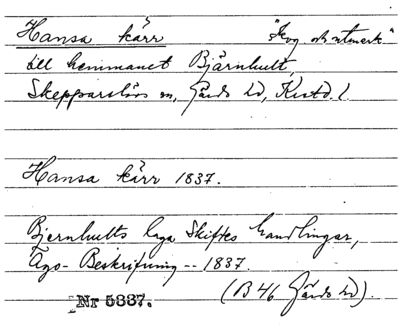 Hansa kärr "Skog och utmark"
till hemmanet Bjärnhult,
Skepparslövs sn, Gärds hd, Kristd. l
Hansa kärr 1837.
Bjernhults laga Skiftes handlingar,
Ägo-Beskrifning -- 1837.
(B 46 Gärds hd).
Nr 5337.